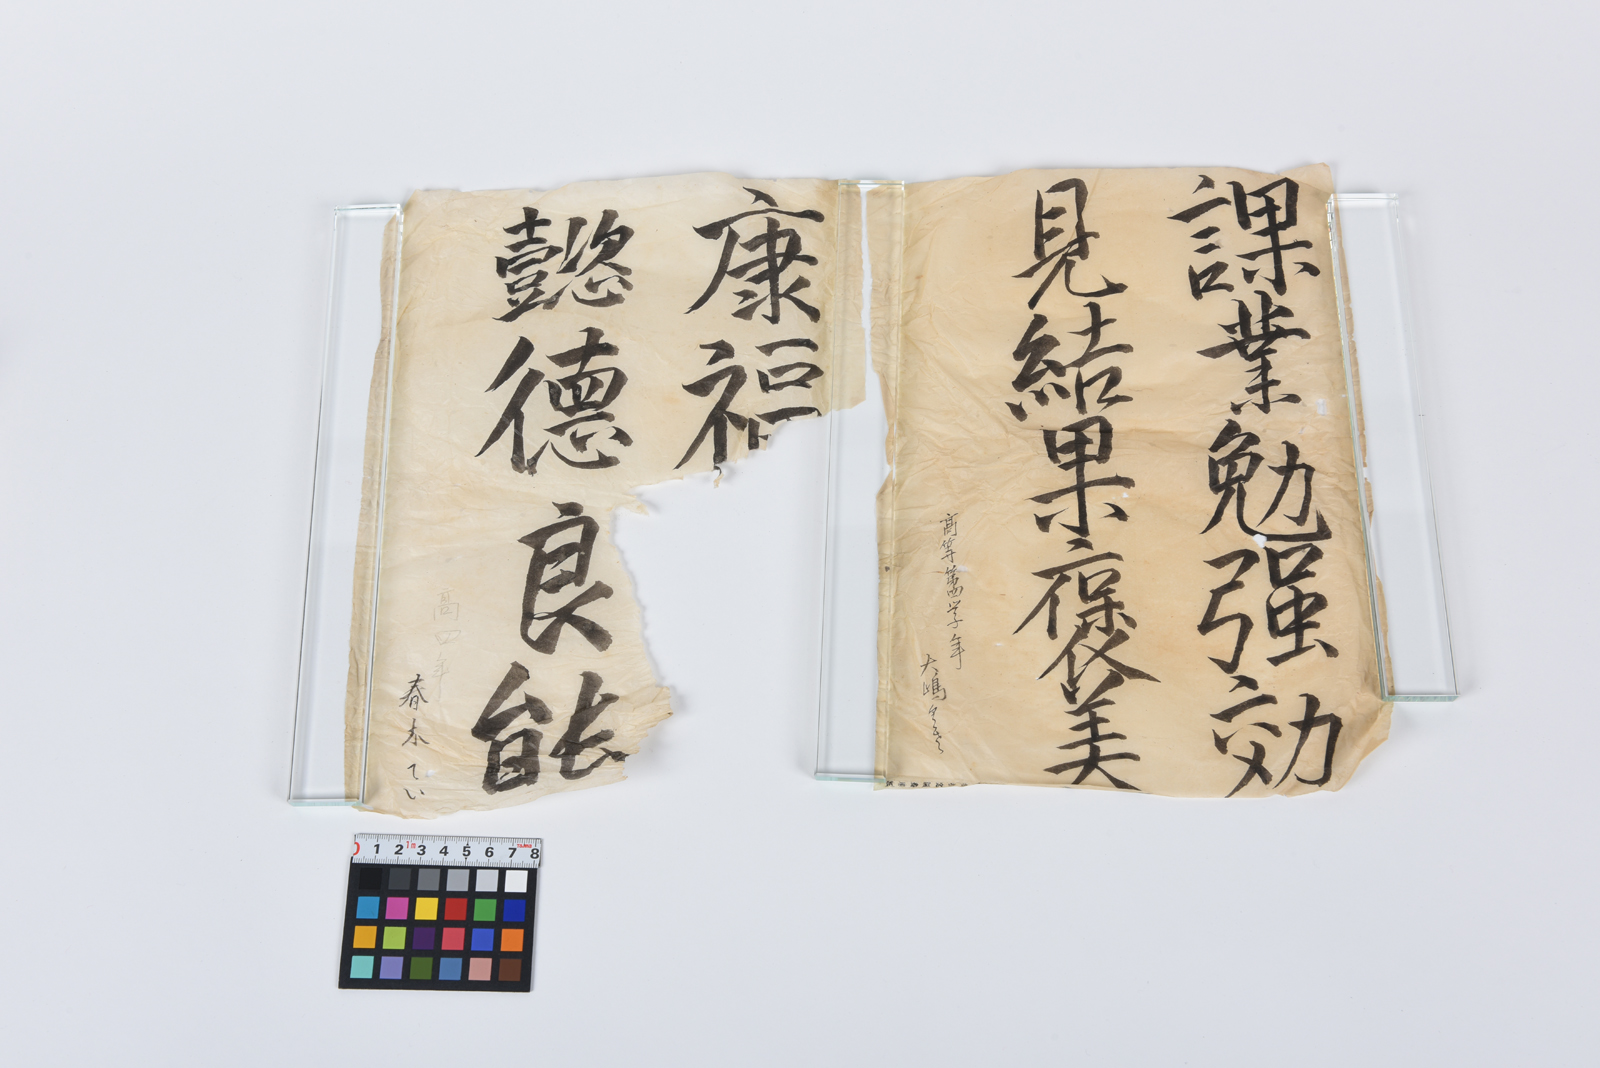 課業勉强効
見結果褒美
高等第四学年
大嶋
康福
懿德良能
高四年
春木てい
0 1 2 3 4 5 6 7 8